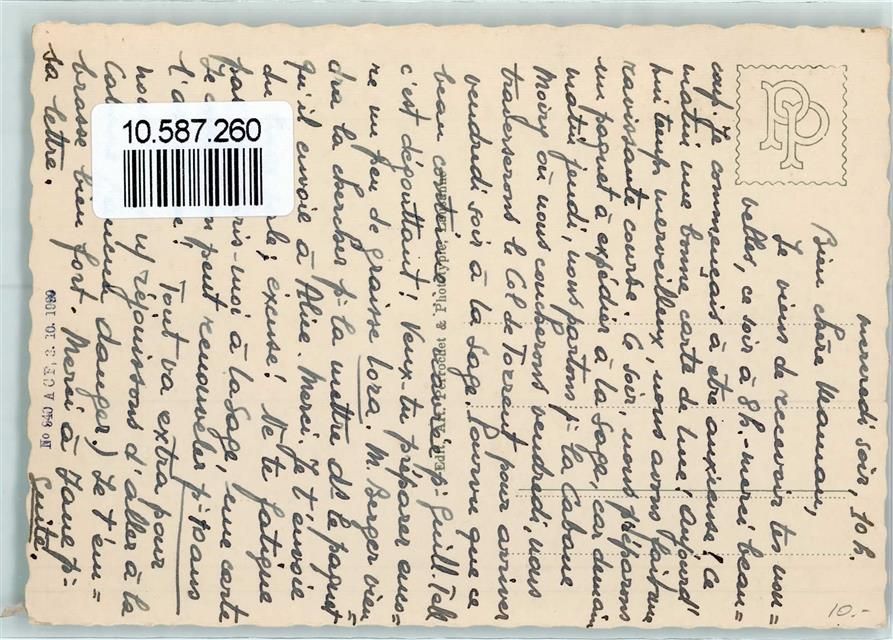 mercredi soir, 10 h.
Bien chère Maman,
Je viens de recevoir tes nou=
velles, ce soir à 8 h. - merci beau=
coup. Je commençais à être anxieuse! Ce
matin une bonne carte de Luc; Aujourd'
hui temps merveilleux, nous avons fait une
ravissante course. Ce soir, nous préparons
un paquet à expédier à la Sage, car demain
matin jeudi, nous partons p. la Cabane
Moiry où nous coucherons vendredi, nous
traverserons le Col de Torrent pour arriver
vendredi soir à la Sage. Pourvu que ce
beau continue
c'est dégouttant! Veux-tu préparer enco=
re un peu de graisse Lora. M. Berger vien=
dra la chercher p. la mettre ds le paquet
qu'il envoie à Aline. Merci. Je t'envoie
du excuse! Ne te fatigue
pas à la Sage, une carte
Je peut renouveler p. 1 sans
l'a Tout va extra pour
nou réjouissons d'aller à la
Cab danger.) Je t'em=
brasse bien fort. Merci à Jane p.
sa lettre. Suite!
PP
Edit. Art. Perrochet & Phototypie
No 840 A C F, 3. 10. 1939
10.587.260
10.-